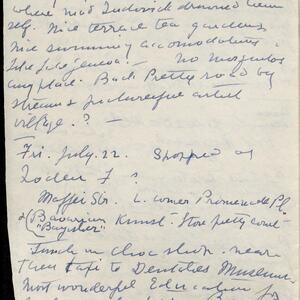 where mad Ludwick drowned him
self. Nice terrace tea gardens
Nice swimming accomodations
like Lake Geneva! — No mosquitos
any place. Back Pretty road by
stream & picturesque artist
village. ? —
Fri. July. 22. Shopped at
Loden F
Maffei Str. L. corner Promenade Pl.
& (Bavarian Kunst - Store pretty court -
"Bayrisher"
Lunch in choc shop. near
Then taxi to Deutches Museum.
most wonderful Education for